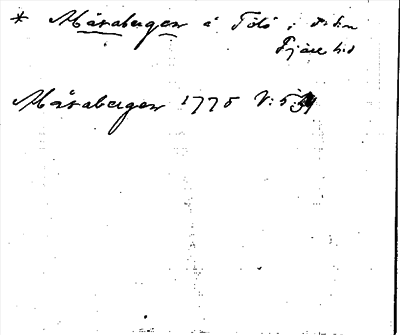 * Måsabergen å Tölö i d:o sn
Fjäre hd
Måsabergen 1775 V: 5